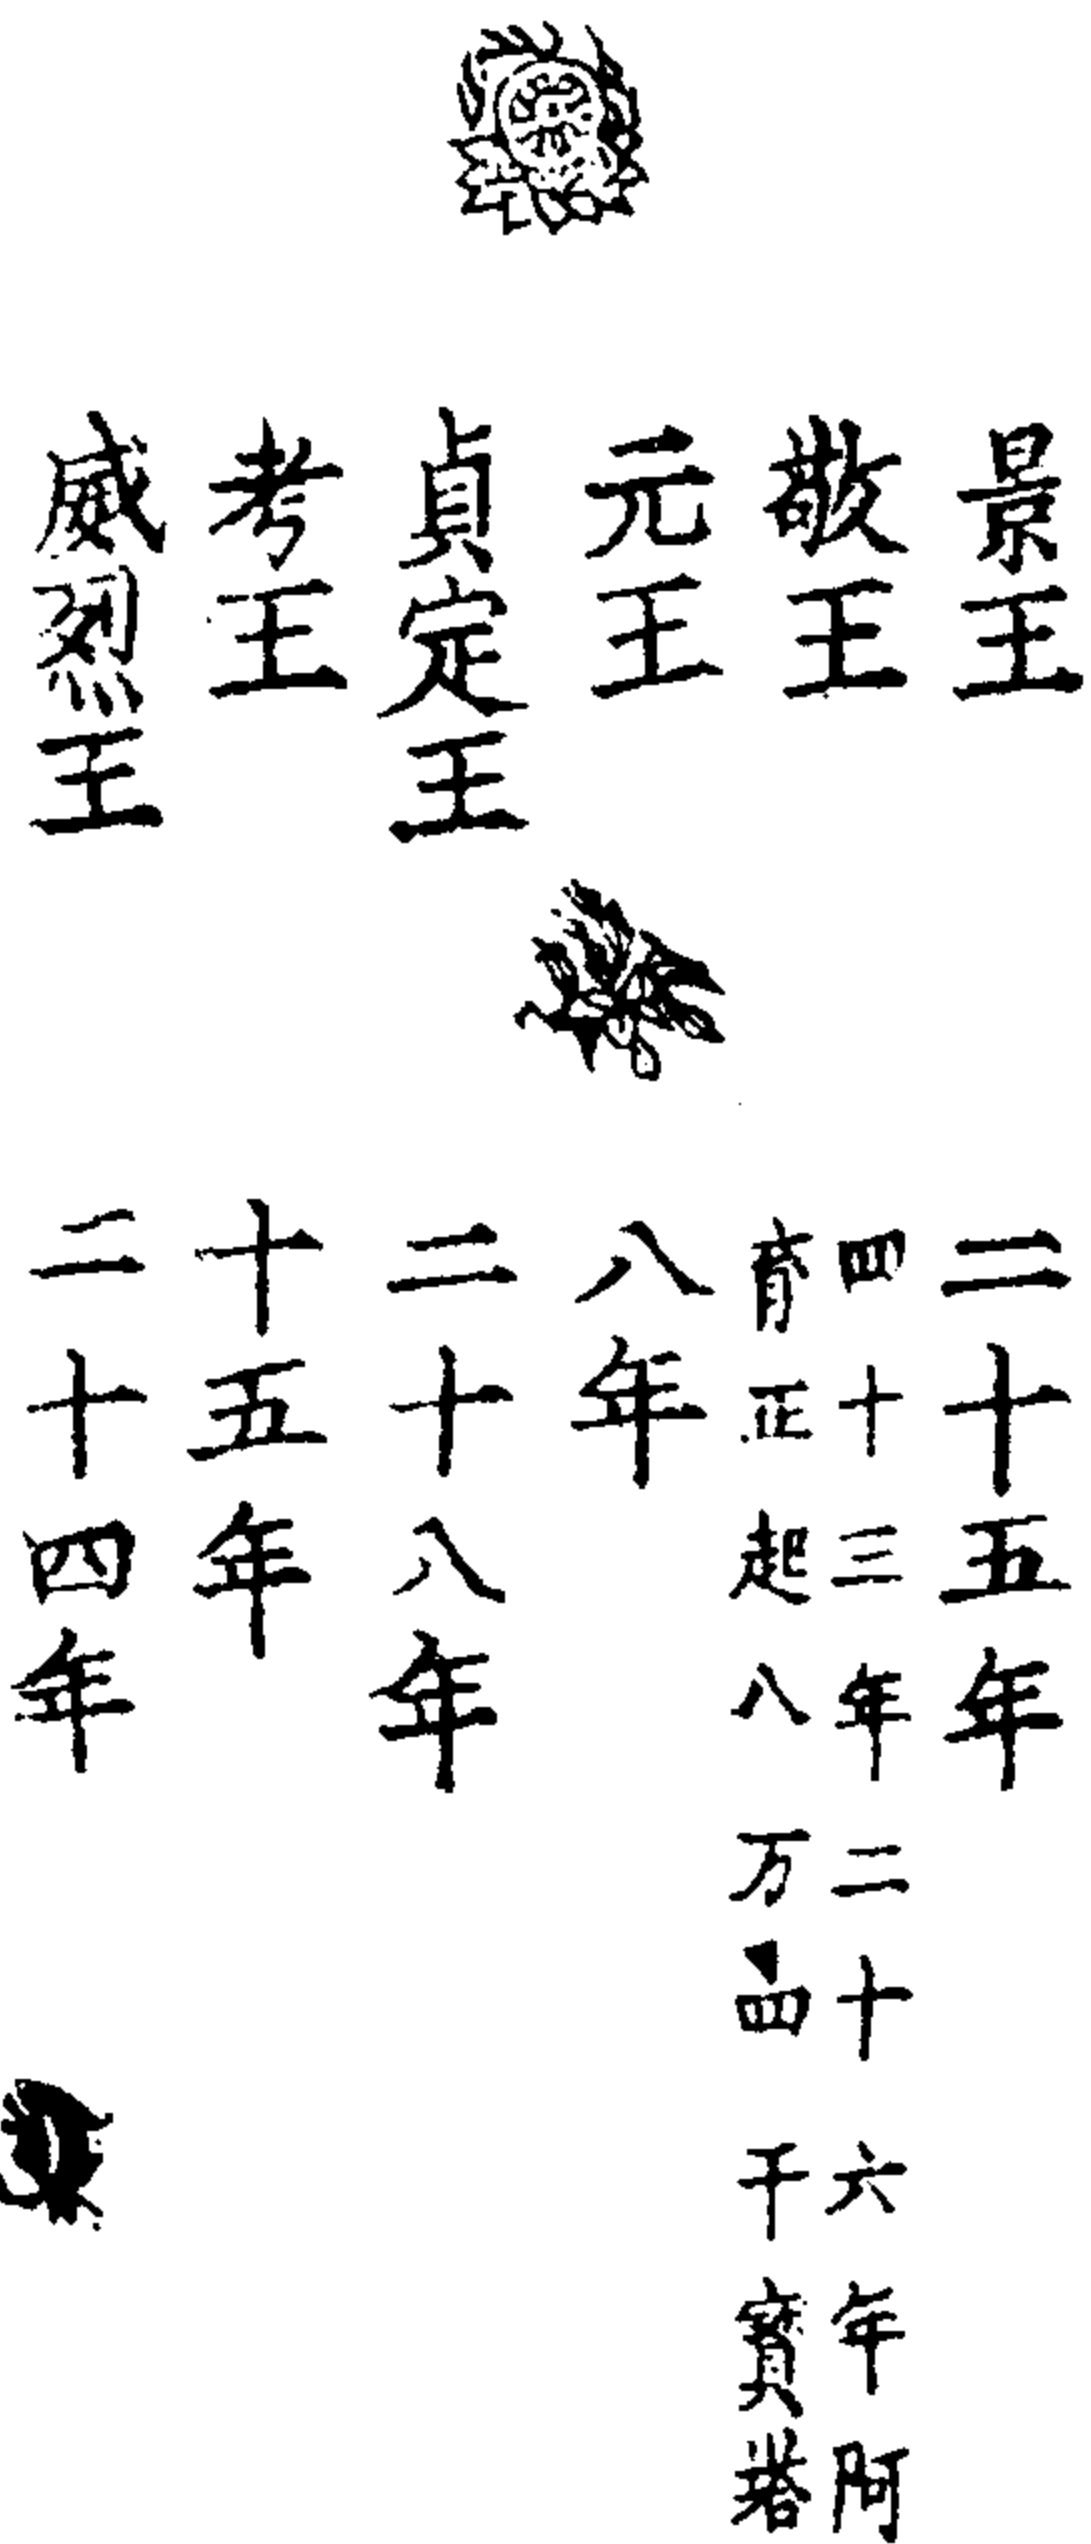 景王 二十五年
敬王 四十三年二十六年阿
育正起八万四千寳塔
元王 八年
貞定王 二十八年
考王 十五年
威烈王 二十四年